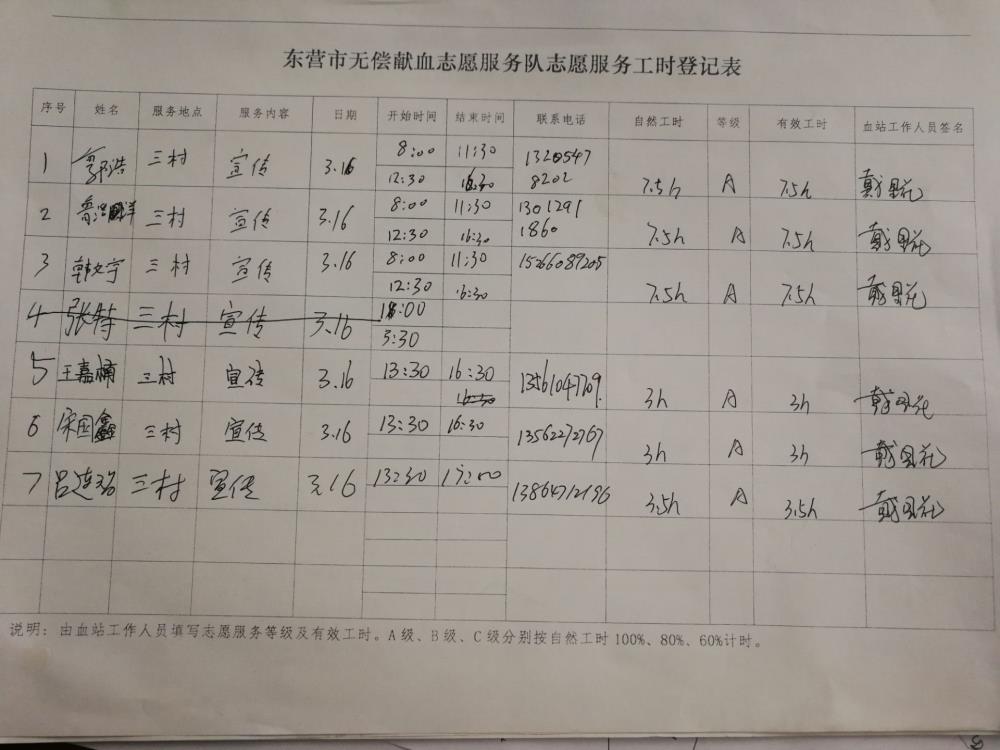 东营市无偿献血志愿服务队志愿服务工时登记表
序号 姓名 服务地点 服务内容 日期 开始时间 结束时间 联系电话 自然工时 等级 有效工时 血站工作人员签名
1 三村 宣传 3.16 8:00 11:30 1320547
12:30 16:30 8202 7.5h A 7.5h
2 三村 宣传 3.16 8:00 11:30 1301291
12:30 16:30 1860 7.5h A 7.5h
3 韩文宇 三村 宣传 3.16 8:00 11:30 15266089205
12:30 16:30 7.5h A 7.5h
4 张特 三村 宣传 3.16 18:00
3:30
5 王嘉楠 三村 宣传 3.16 13:30 16:30 13561047709
16:30 3h A 3h
6 宋国鑫 三村 宣传 3.16 13:30 16:30 13562272767
3h A 3h
7 三村 宣传 3.16 13:30 17:00 13864712196
3.5h A 3.5h
说明：由血站工作人员填写志愿服务等级及有效工时。A级、B级、C级分别按自然工时100%、80%、60%计时。